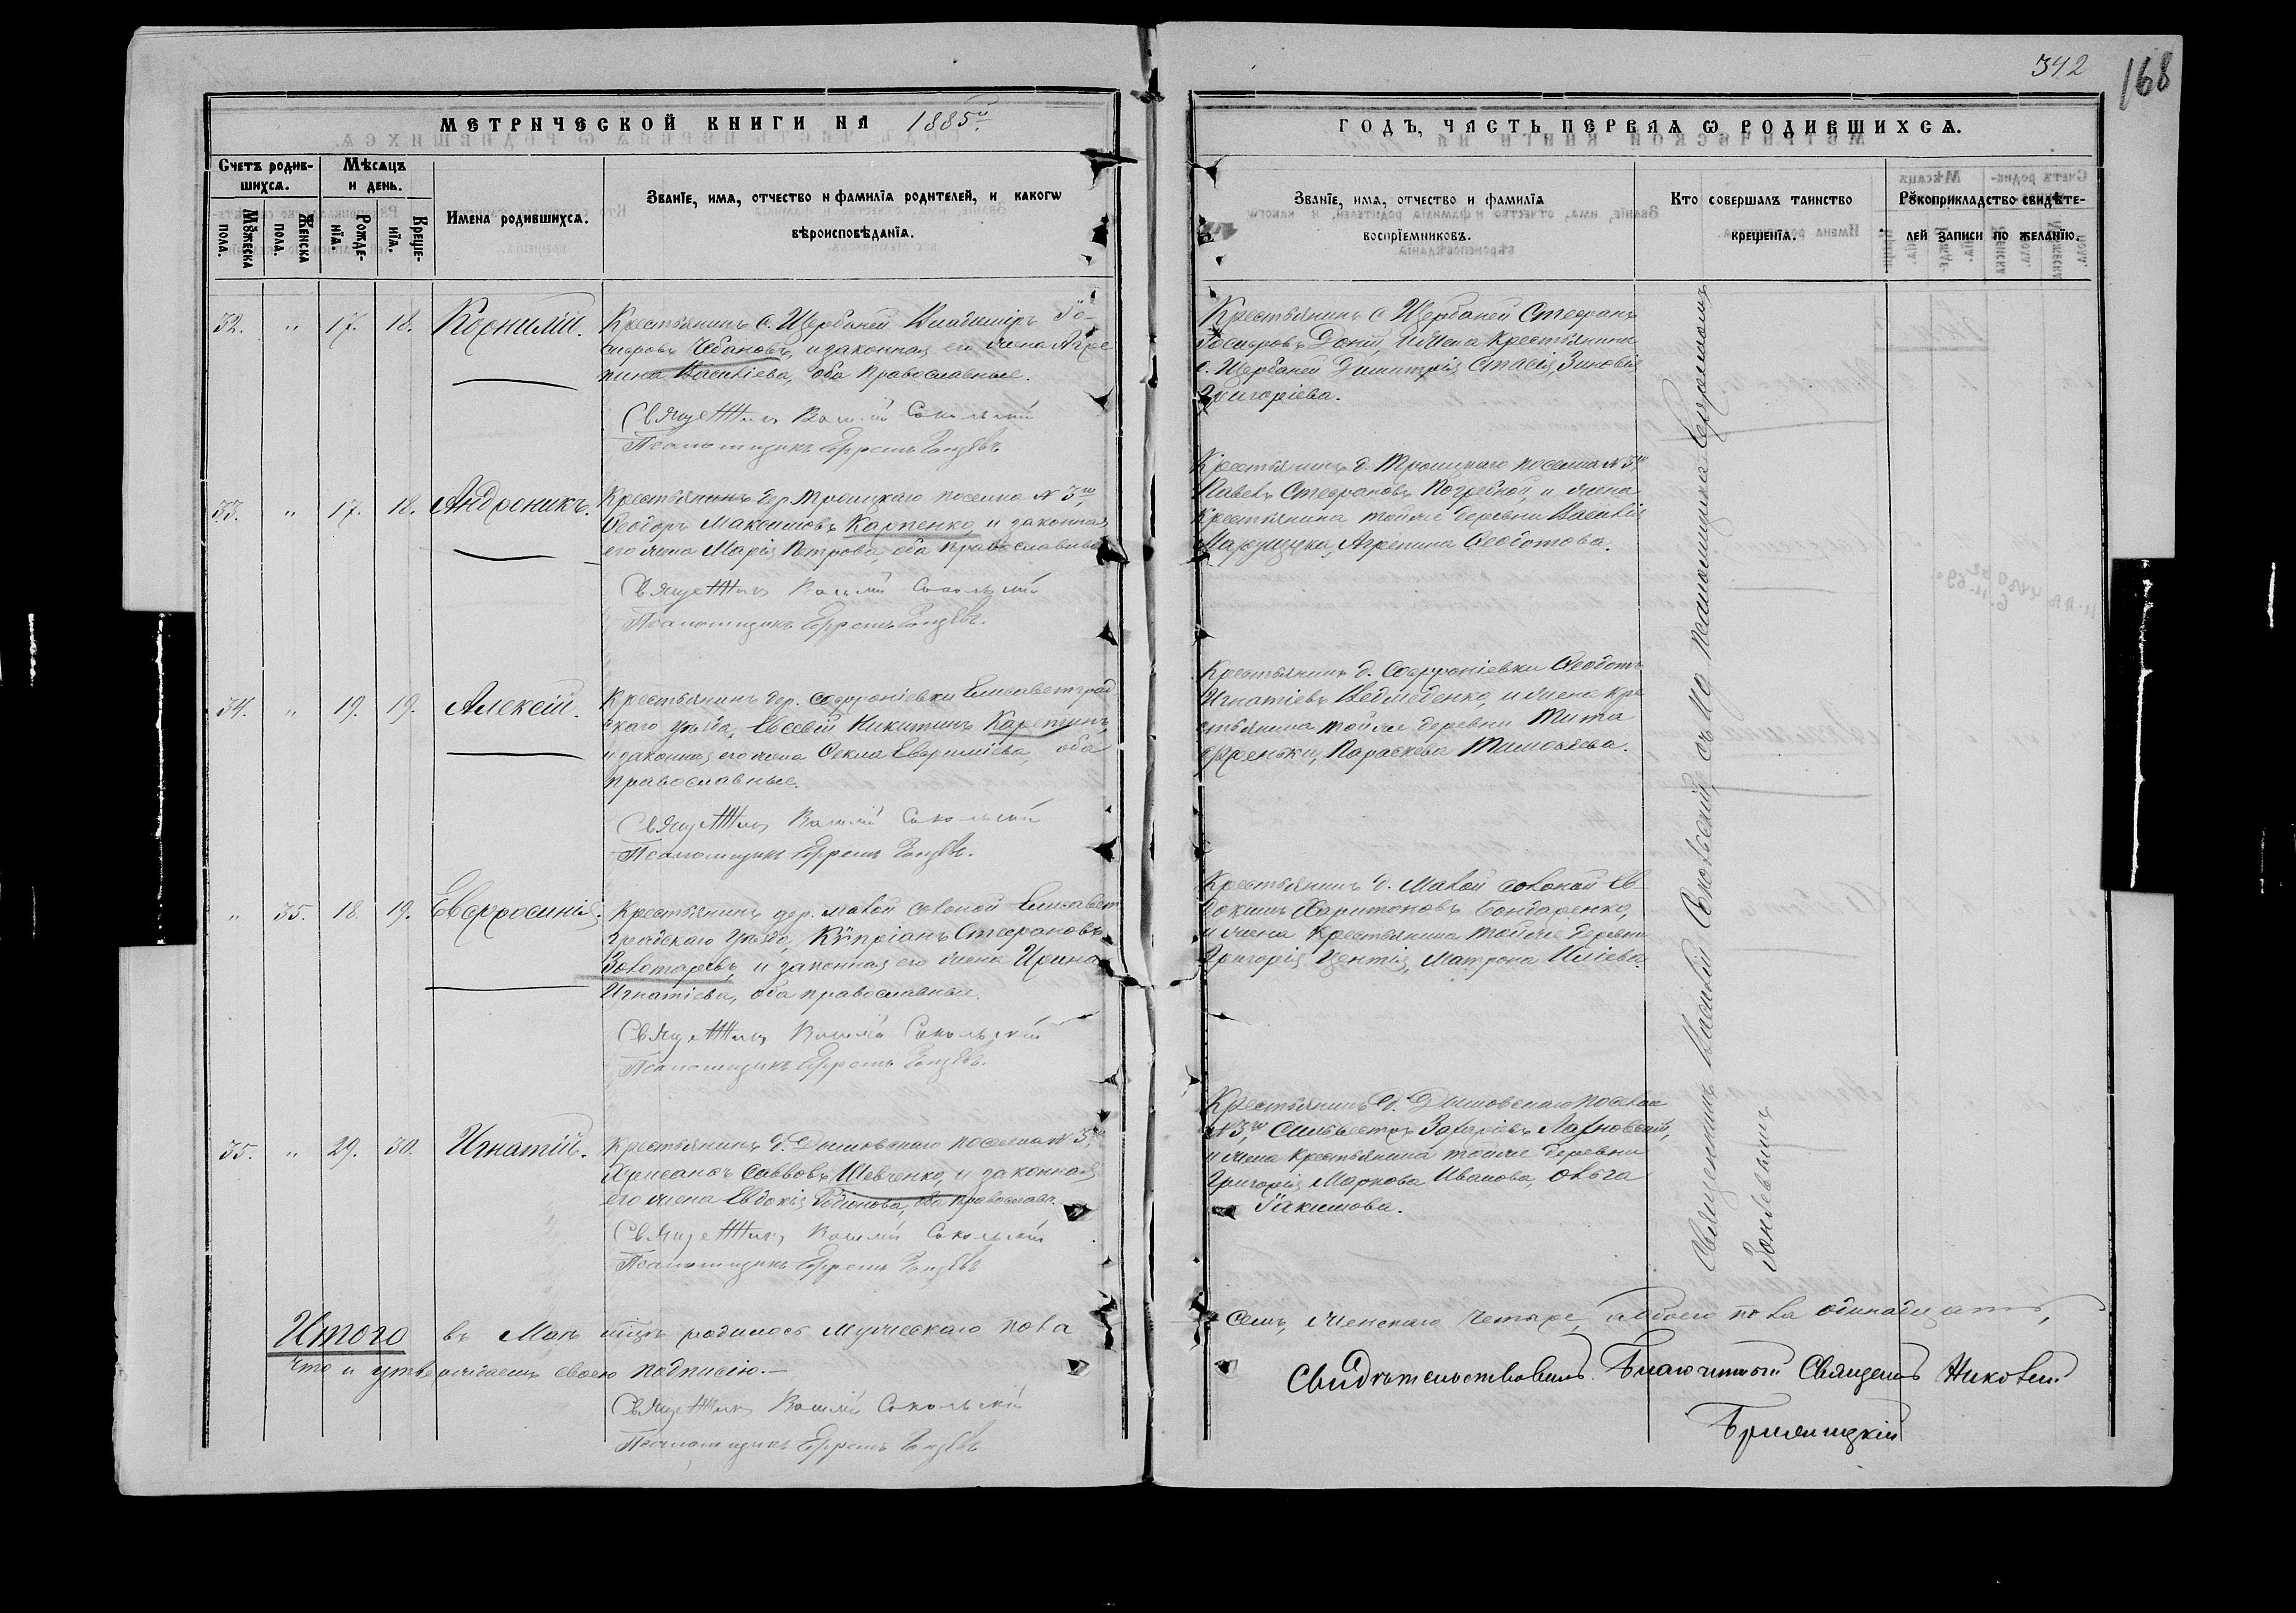 342
168
МЕТРИЧЕСКОЙ КНИГИ НА 1885й
ГОДЪ, ЧАСТЬ ПЕРВАѦ Ѡ РОДИВШИХСѦ.
Счетъ родив-
шихсѧ.
Мѣсѧцъ
и день.
Мꙋжеска
пола.
Женска
пола.
Рожде-
нїѧ.
Креще-
нїѧ.
Имена родившихсѧ.
Званїе, имѧ, отчество и фамилїѧ родителей, и какогѡ
вѣроисповѣданїѧ.
Званїе, имѧ, отчество и фамилїѧ
воспрїемниковъ.
Кто совершалъ таинство
крещенїѧ.
Рꙋкоприкладство свидѣте-
лей записи по желанїю.
32. " 17. 18. Корнилій.
Крестьянинъ с. Щербаней Владиміръ Іо-
сифовъ Чебановъ, и законная его жена Агре
пина Василіева, оба православные.
Священникъ Василій Сокольскій
Псаломщикъ Ефремъ
Крестьянинъ с Щербаней Стефанъ
Іосифовъ Доній, и жена крестьянина
с. Щербаней Димитрія Стасія, Зиновія
Григоріева.
33. " 17. 18. Андроникъ.
Крестьянинъ дер Троицкаго поселка № 3го
Ѳеодоръ Максимовъ Карпенко, и законная
его жена Марія Петрова, оба православные
Священникъ Василій Сокольскій
Псаломщикъ Ефремъ
Крестьянинъ д. Троицкаго поселка № 3го
Павелъ Стефановъ Погребной, и жена
Крестьянина той же деревни Василія
Агрепина Ѳеодотова.
34. " 19. 19. Алексій.
Крестьянинъ дер. Софроніевки Елисаветград
скаго уѣзда, Евсевій Никитинъ
и законная его жена Ѳекла Евфиміева, оба
православные.
Священникъ Василій Сокольскій
Псаломщикъ Ефремъ
Крестьянинъ д. Софроніевки Ѳеодотъ
Игнатіевъ Ведмеденко, и жена кре
стьянина той же деревни Тита
Параскева Тимофеева.
" 35. 18. 19. Евфросинія.
Крестьянинъ дер. Малой Соленой Елисавет
градскаго уѣзда, Кѵпріанъ Стефановъ
Золотаревъ, и законная его жена Ирина
Игнатіева, оба православные.
Священникъ Василій Сокольскій
Псаломщикъ Ефремъ
Крестьянинъ д. Малой Соленой Ев-
докимъ Харитоновъ Бондаренко,
и жена Крестьянина той же деревни
Григорія Матрона Иліева.
35. " 29. 30. Игнатій.
Крестьянинъ д. поселка № 3го
Хрисанфъ Саввовъ Шевченко, и законная
его жена Евдокія Родіонова, оба православн.
Священникъ Василій Сокольскій
Псаломщикъ Ефремъ
Крестьянинъ д. поселка
№ 3го, Сильвестръ Захаріевъ
и жена крестьянина той же деревни
Григорія Маркова Иванова, Ольга
Іакимова.
Священникъ Василій Сокольскій, съ и. д. псаломщика Ефремомъ
Итого въ Маѣ мцѣ родилось мужескаго пола
семь, женскаго четыре, обоего пола одинадцать,
что и утверждаемъ своею подписію.—
Священникъ Василій Сокольскій
Псаломщикъ Ефремъ
Свидѣтельствовалъ Благочинный Священ. Николай